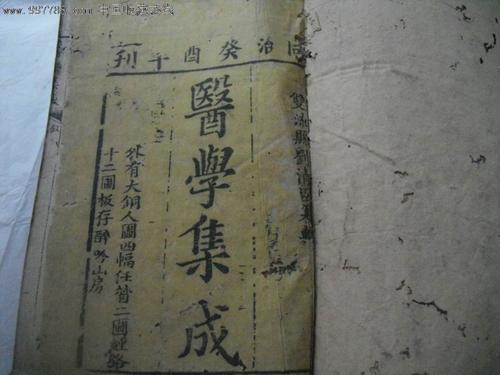 www.997788.com 中国收藏热线
同治癸酉年刊
雙流縣劉清臣
醫學集成
外有大銅人圖四幅任督二圖經絡
十二圖板存醉吟山房